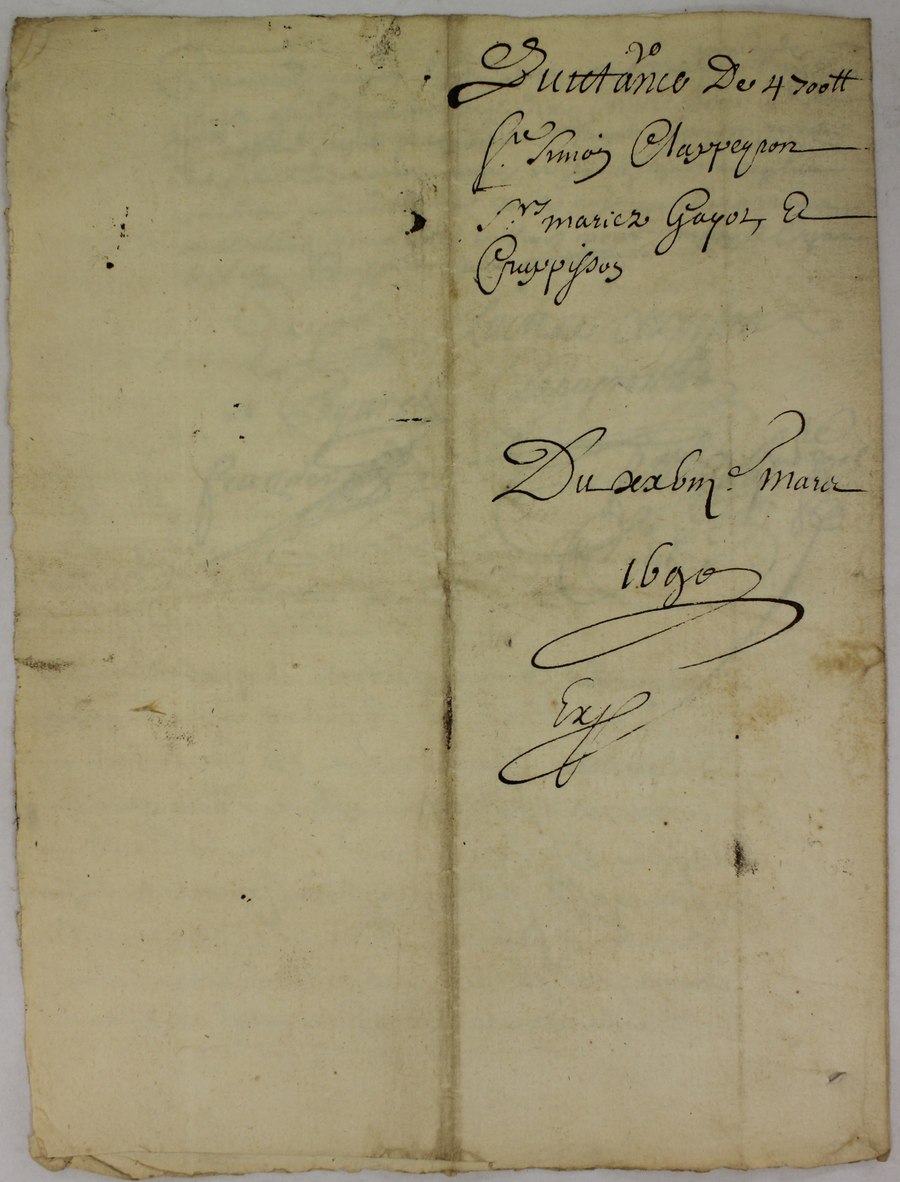 Quictance De 4700tt
Sr. Simon Clappeyron
Srs. mariez Gayot, Et
Cruppisson
Du xxbiije mars
1690
Exp